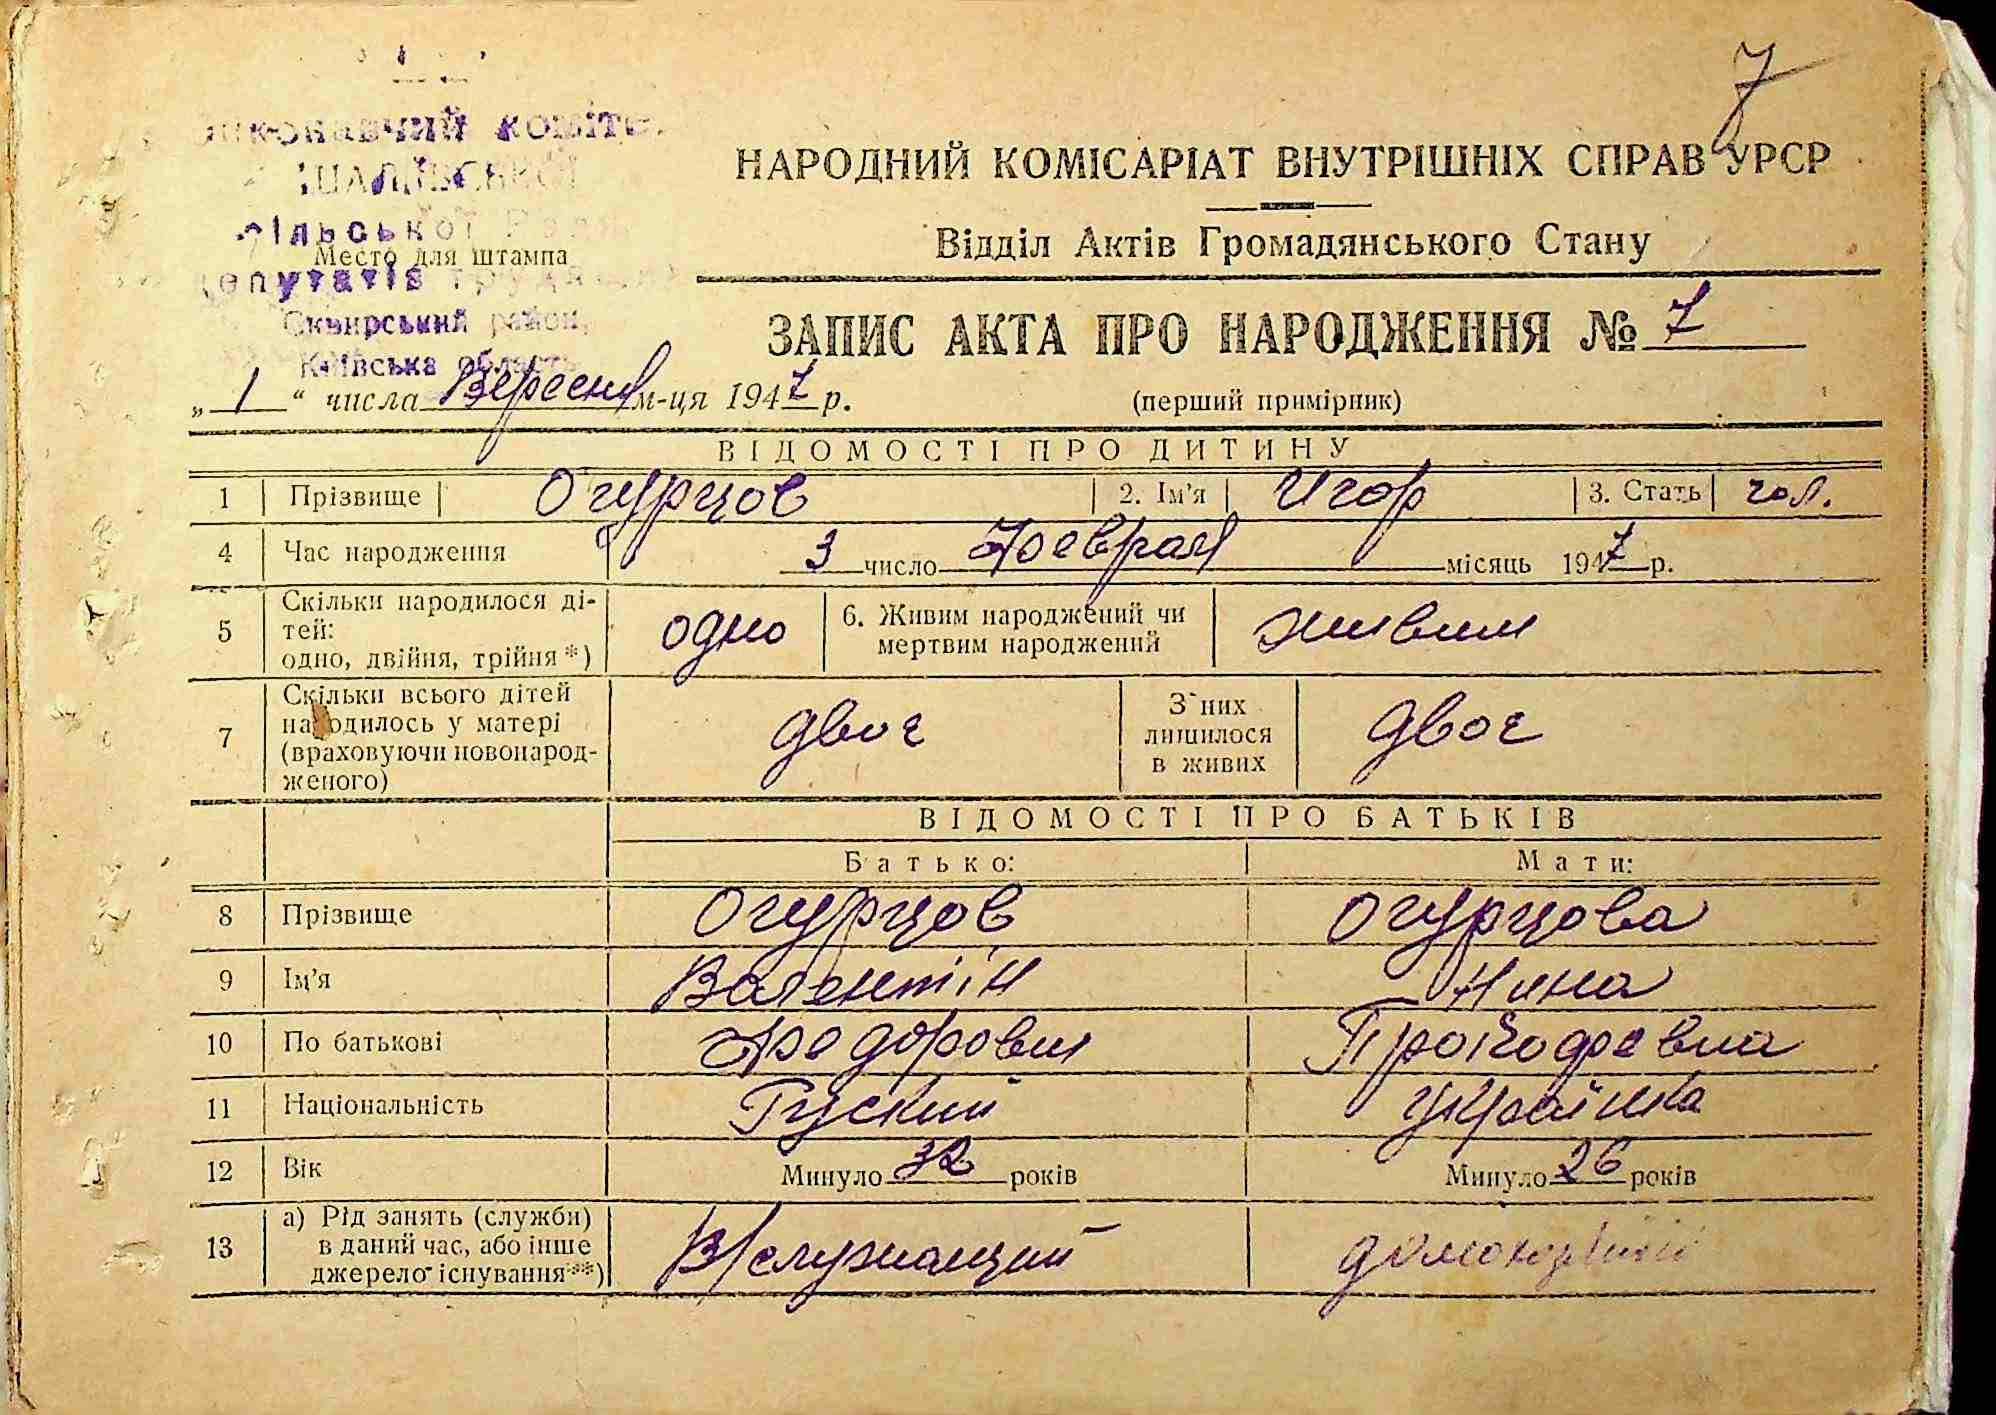 7
виконавчий комітет
Шаліївської
сільської Ради
Место для штампа
депутатів трудящих
Сквирський район,
Київська область
НАРОДНИЙ КОМІСАРІАТ ВНУТРІШНІХ СПРАВ УРСР
Відділ Актів Громадянського Стану
ЗАПИС АКТА ПРО НАРОДЖЕННЯ № 7
„ 1 “ числа Вересня м-ця 1947 р.
(перший примірник)
ВІДОМОСТІ ПРО ДИТИНУ
1 Прізвище Огурцов 2. Ім'я Игор 3. Стать чол.
4 Час народження 3 число Февраля місяць 1947 р.
5 Скільки народилося ді-
тей:
одно, двійня, трійня*) одно 6. Живим народжений чи
мертвим народжений живим
7 Скільки всього дітей
народилось у матері
(враховуючи новонарод-
женого) двоє З них
лишилося
в живих двоє
ВІДОМОСТІ ПРО БАТЬКІВ
Батько: Мати:
8 Прізвище Огурцов Огурцова
9 Ім'я Валентін Нина
10 По батькові Федорович Прокофевна
11 Національність Руский українка
12 Вік Минуло 32 років Минуло 26 років
13 а) Рід занять (служби)
в даний час, або інше
джерело існування**) В/служащий